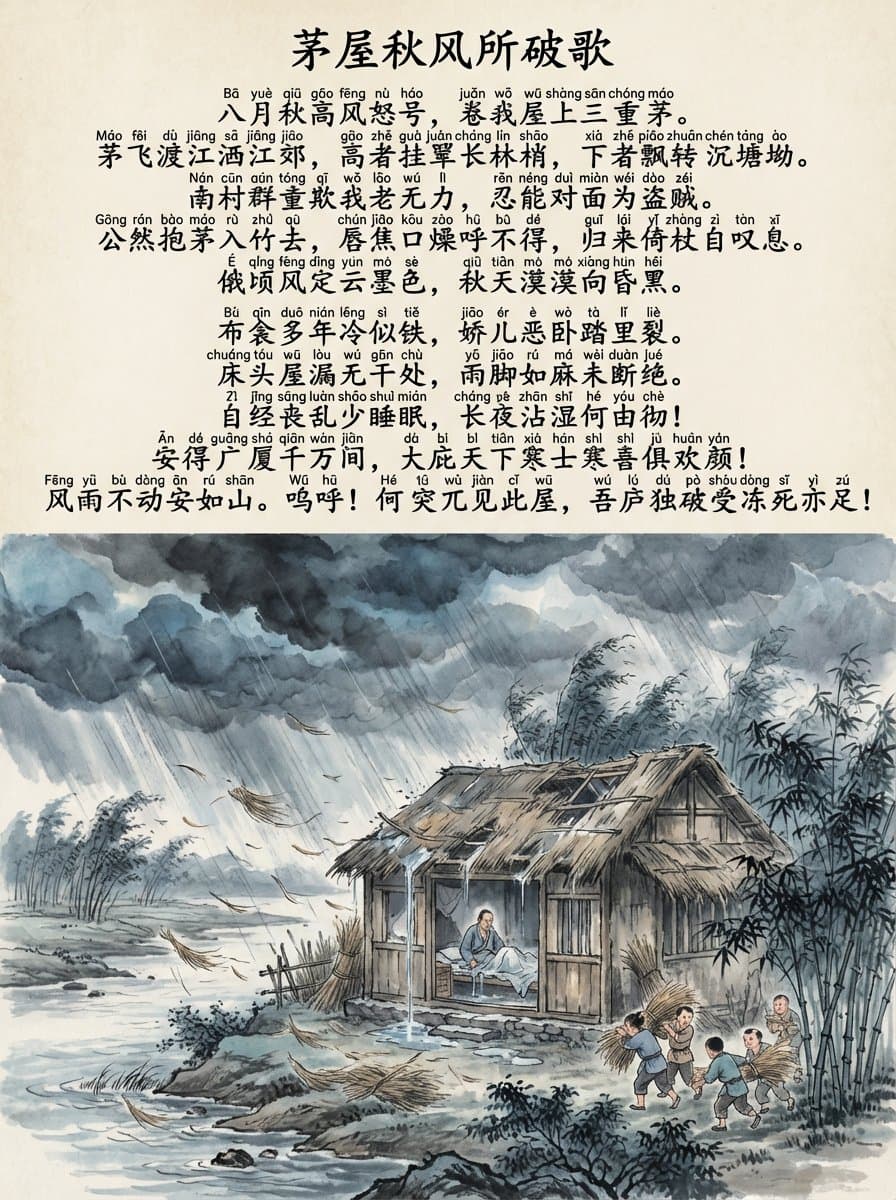 茅屋秋风所破歌
Bā yuè qiū gāo fēng nù háo juǎn wō wū shàng sān chóng máo
八月秋高风怒号，卷我屋上三重茅。
Máo fēi dù jiāng sā jiāng jiāo gāo zhě guà juàn cháng lín shāo xià zhě piāo zhuǎn chén táng ào
茅飞渡江洒江郊，高者挂罩长林梢，下者飘转沉塘坳。
Nán cūn qún tóng qī wǒ lǎo wú lì rěn néng duì miàn wéi dào zéi
南村群童欺我老无力，忍能对面为盗贼。
Gōng rán bào máo rù zhú qù chún jiāo kǒu zào hū bù dé guī lái yǐ zhàng zì tàn xī
公然抱茅入竹去，唇焦口燥呼不得，归来倚杖自叹息。
É qǐng fēng dìng yún mò sè qiū tiān mò mò xiàng hūn hēi
俄顷风定云墨色，秋天漠漠向昏黑。
Bù qīn duō nián lěng sì tiě jiāo ér è wò tà lǐ liè
布衾多年冷似铁，娇儿恶卧踏里裂。
chuáng tóu wū lòu wú gān chù yǔ jiǎo rú má wèi duàn jué
床头屋漏无干处，雨脚如麻未断绝。
Zì jīng sāng luàn shǎo shuì mián cháng yè zhān shī hé yóu chè
自经丧乱少睡眠，长夜沾湿何由彻！
Ān dé guǎng shà qiān wàn jiān dà bì bì tiān xià hán shì shì jù huān yán
安得广厦千万间，大庇天下寒士寒喜俱欢颜！
Fēng yǔ bù dòng ān rú shān Wū hū Hé wù jiàn cǐ wū wú lú dú pò shòu dòng sǐ yì zú
风雨不动安如山。呜呼！何突兀见此屋，吾庐独破受冻死亦足！